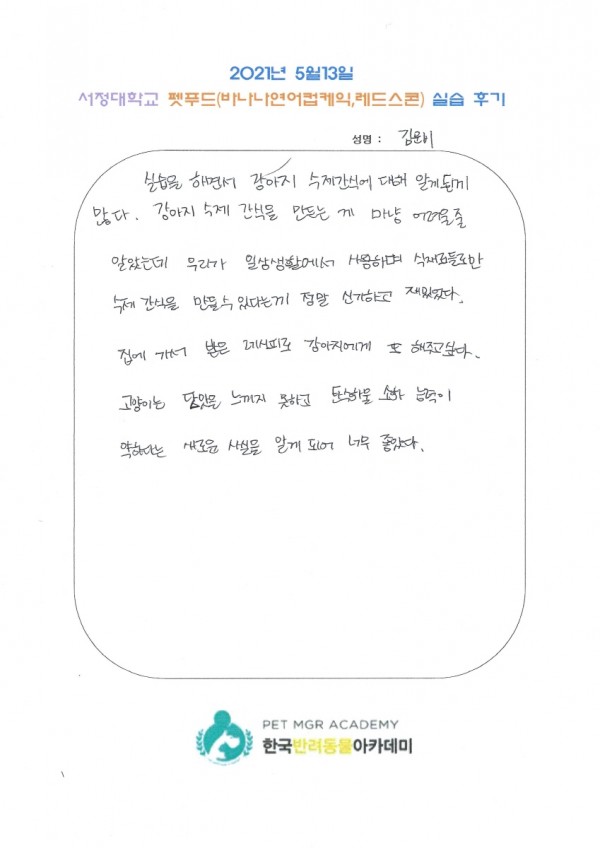 2021년 5월13일
서정대학교 펫푸드(바나나연어컵케익,레드스콘) 실습 후기
성명 : 김은비
실습을 하면서 강아지 수제간식에 대해 알게된게
많다. 강아지 수제 간식을 만드는 게 마냥 어려울줄
알았는데 우리가 일상생활에서 사용하며 식재료들로만
수제 간식을 만들수 있다는게 정말 신기하고 재밌었다.
집에 가서 받은 레시피로 강아지에게 또 해주고싶다.
고양이는 단맛을 느끼지 못하고 탄수화물 소화 능력이
약하다는 새로운 사실을 알게 되어 너무 좋았다.
PET MGR ACADEMY
한국반려동물아카데미